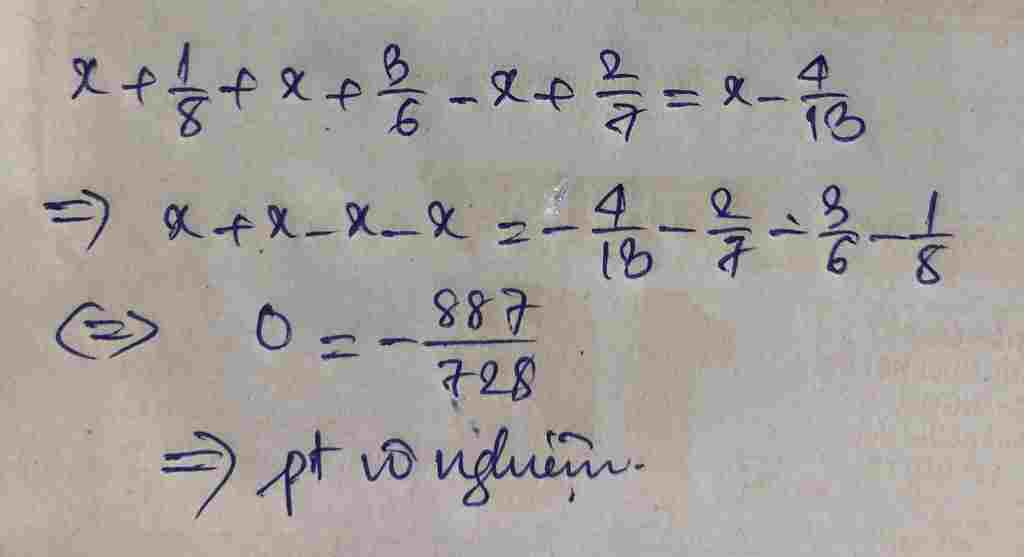 x + 1/8 + x + 3/6 - x + 2/7 = x - 4/13
=> x + x - x - x = - 4/13 - 2/7 - 3/6 - 1/8
<=> 0 = - 887/728
=> pt vô nghiệm.